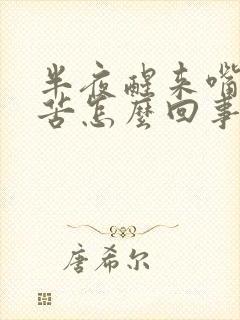 半夜醒来嘴
苦怎麼回事
唐希尔